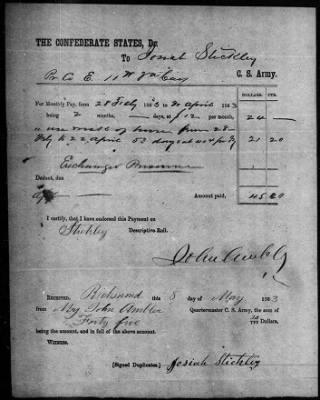 THE CONFEDERATE STATES, Dr.
To Josiah Stickley
Pr Co E. 11th Va Cav C. S. Army.
DOLLARS. CTS.
For Monthly Pay, from 28 Feby 1863 to April 1863
being 2 months, — days, at 12 per month, 24 —
use of horse from 28
Feby to 22 April 53 days at 40c pr dy 21 20
Exchanged Prisoner
Deduct, due
Amount paid, 45 20
I certify, that I have endorsed this Payment on
Stickley Descriptive Roll.
John Ambler
RECEIVED, Richmond this 8 day of May 1863
from Maj John Ambler Quartermaster C. S. Army, the sum of
Forty five 20/100 Dollars,
being the amount, and in full of the above account.
Witness.
[Signed Duplicates.] Josiah Stickley